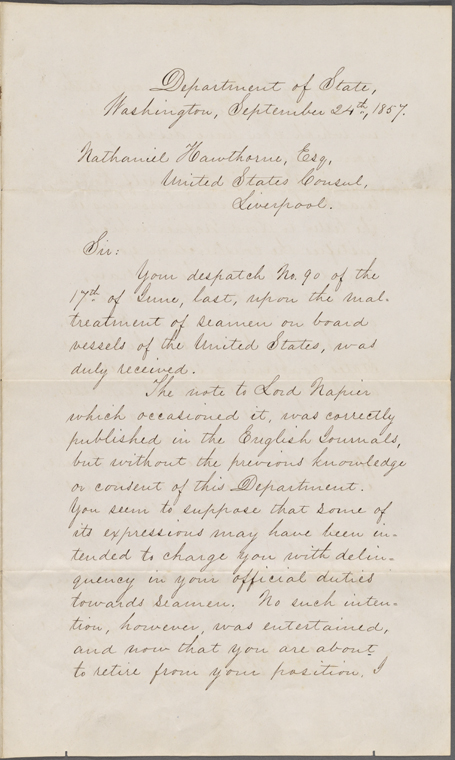 Department of State,
Washington, September 24th, 1857.
Nathaniel Hawthorne, Esq,
United States Consul,
Liverpool.
Sir:
Your despatch No. 90 of the
17th of June, last, upon the mal-
treatment of seamen on board
vessels of the United States, was
duly received.
The note to Lord Napier
which occasioned it, was correctly
published in the English Journals,
but without the previous knowledge
or consent of this Department.
You seem to suppose that some of
its expressions may have been in-
tended to charge you with delin-
quency in your official duties
towards seamen. No such inten-
tion, however, was entertained,
and now that you are about
to retire from your position, I